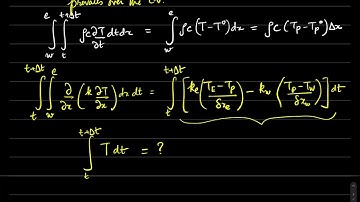 prevails over the CV.
∫_w^e ∫_t^{t+Δt} ρc ∂T/∂t dt dx = ∫_w^e ρc (T-T°) dx = ρc (T_P-T_P°) Δx
∫_t^{t+Δt} ∫_w^e ∂/∂x (k ∂T/∂x) dx dt = ∫_t^{t+Δt} [k_e (T_E-T_P / δx_e) - k_w (T_P-T_W / δx_w)] dt
∫_t^{t+Δt} T dt = ?